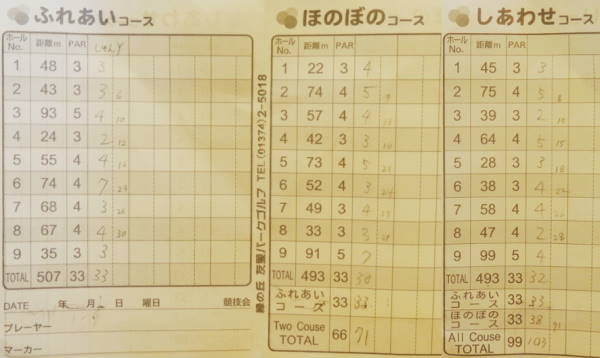 ふれあいコース
ホールNo. 距離m PAR
1 48 3 3
2 43 3 3 6
3 93 5 4 10
4 24 3 2 12
5 55 4 4 16
6 74 4 7
7 68 4 3
8 67 4 4 30
9 35 3 3
TOTAL 507 33 33
DATE 年 月 日 曜日 競技会
プレーヤー
マーカー
緑の丘 友愛パークゴルフ TEL(01374)2-5018
ほのぼのコース
ホールNo. 距離m PAR
1 22 3 4
2 74 4 5 9
3 57 4 4
4 42 3 3
5 73 4 5
6 52 3 3
7 49 3 4
8 33 3 3
9 91 5 7
TOTAL 493 33 38
ふれあいコース 33 33
Two Couse TOTAL 66 71
しあわせコース
ホールNo. 距離m PAR
1 45 3 3
2 75 4 5 8
3 39 3 2 10
4 64 4 5 15
5 28 3 3 18
6 38 3 4 22
7 58 4 4
8 47 4 2 28
9 99 5 4
TOTAL 493 33 32
ふれあいコース 33 33
ほのぼのコース 33 38 71
All Couse TOTAL 99 103